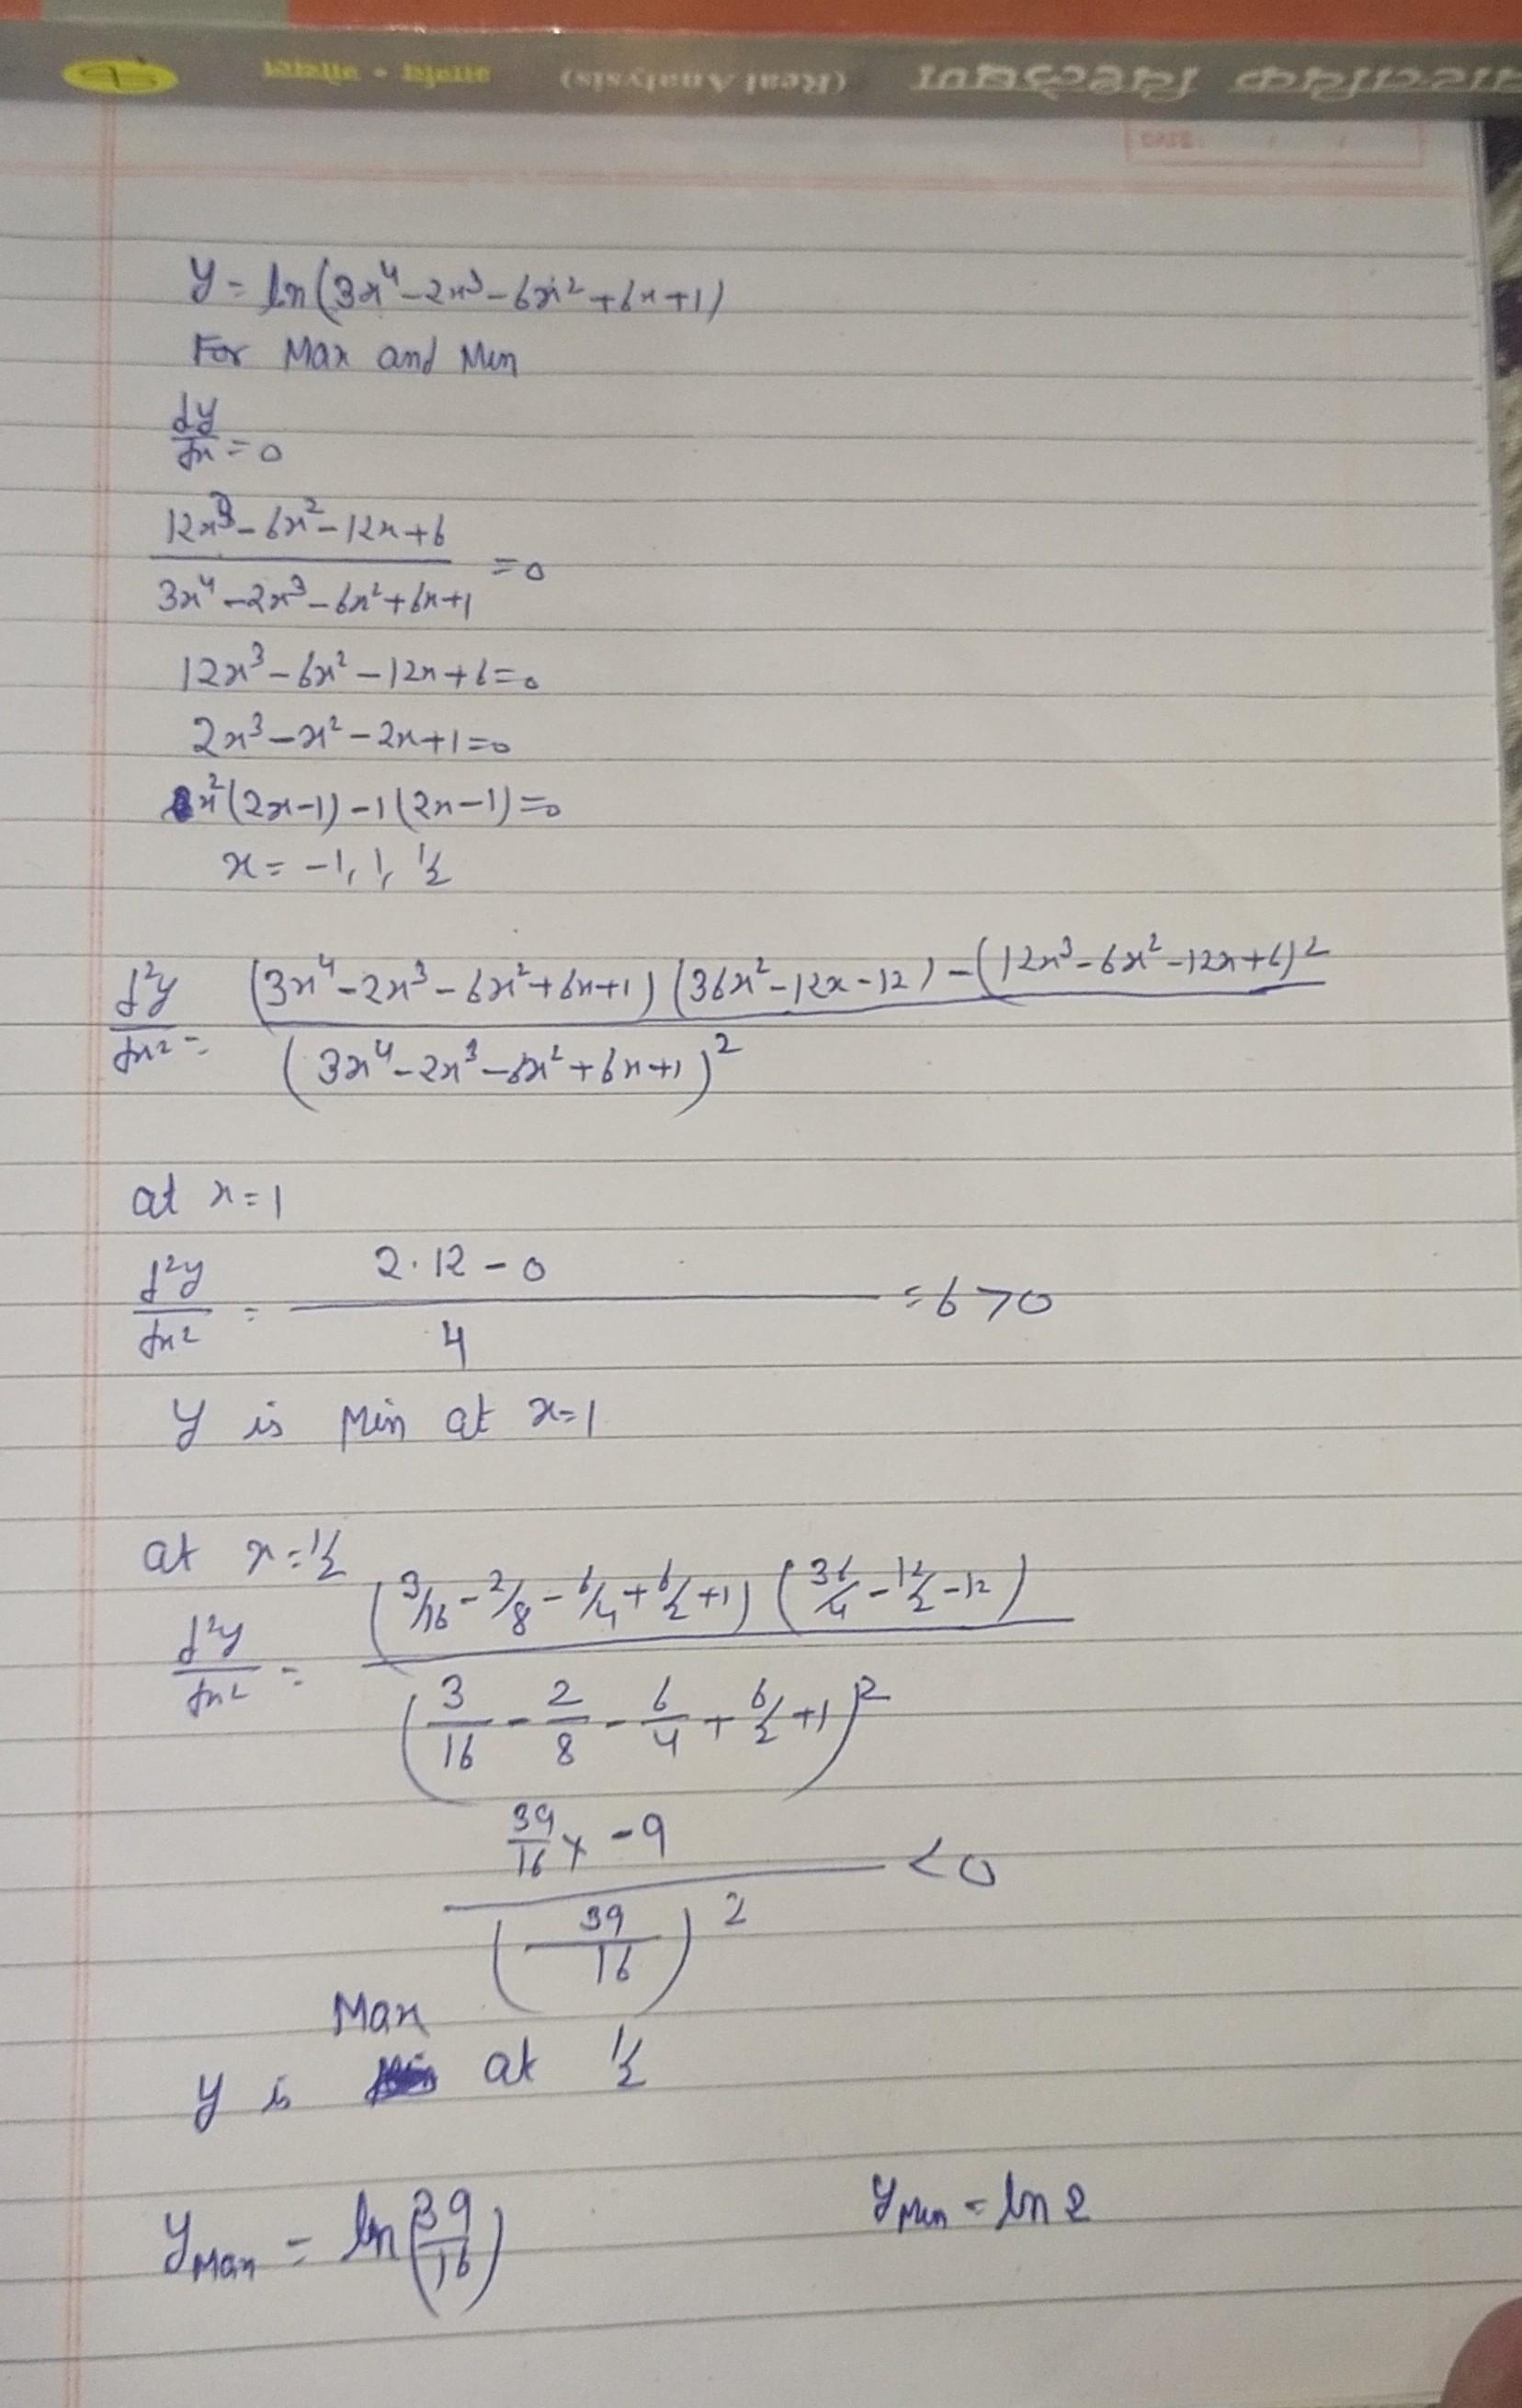 वास्तविक विश्लेषण (Real Analysis)
Date :
y = ln(3x⁴-2x³-6x²+6x+1)
For Max and Min
dy/dx = 0
(12x³-6x²-12x+6)/(3x⁴-2x³-6x²+6x+1) = 0
12x³-6x²-12x+6=0
2x³-x²-2x+1=0
x²(2x-1)-1(2x-1)=0
x = -1, 1, 1/2
d²y/dx² = ((3x⁴-2x³-6x²+6x+1)(36x²-12x-12)-(12x³-6x²-12x+6)²)/(3x⁴-2x³-6x²+6x+1)²
at x=1
d²y/dx² = (2·12-0)/4 = 6>0
y is Min at x=1
at x=1/2
d²y/dx² = ((3/16-2/8-6/4+6/2+1)(36/4-12/2-12))/(3/16-2/8-6/4+6/2+1)²
(39/16 x -9)/(39/16)² <0
y is Max at 1/2
yMax = ln(39/16) yMin = ln 2